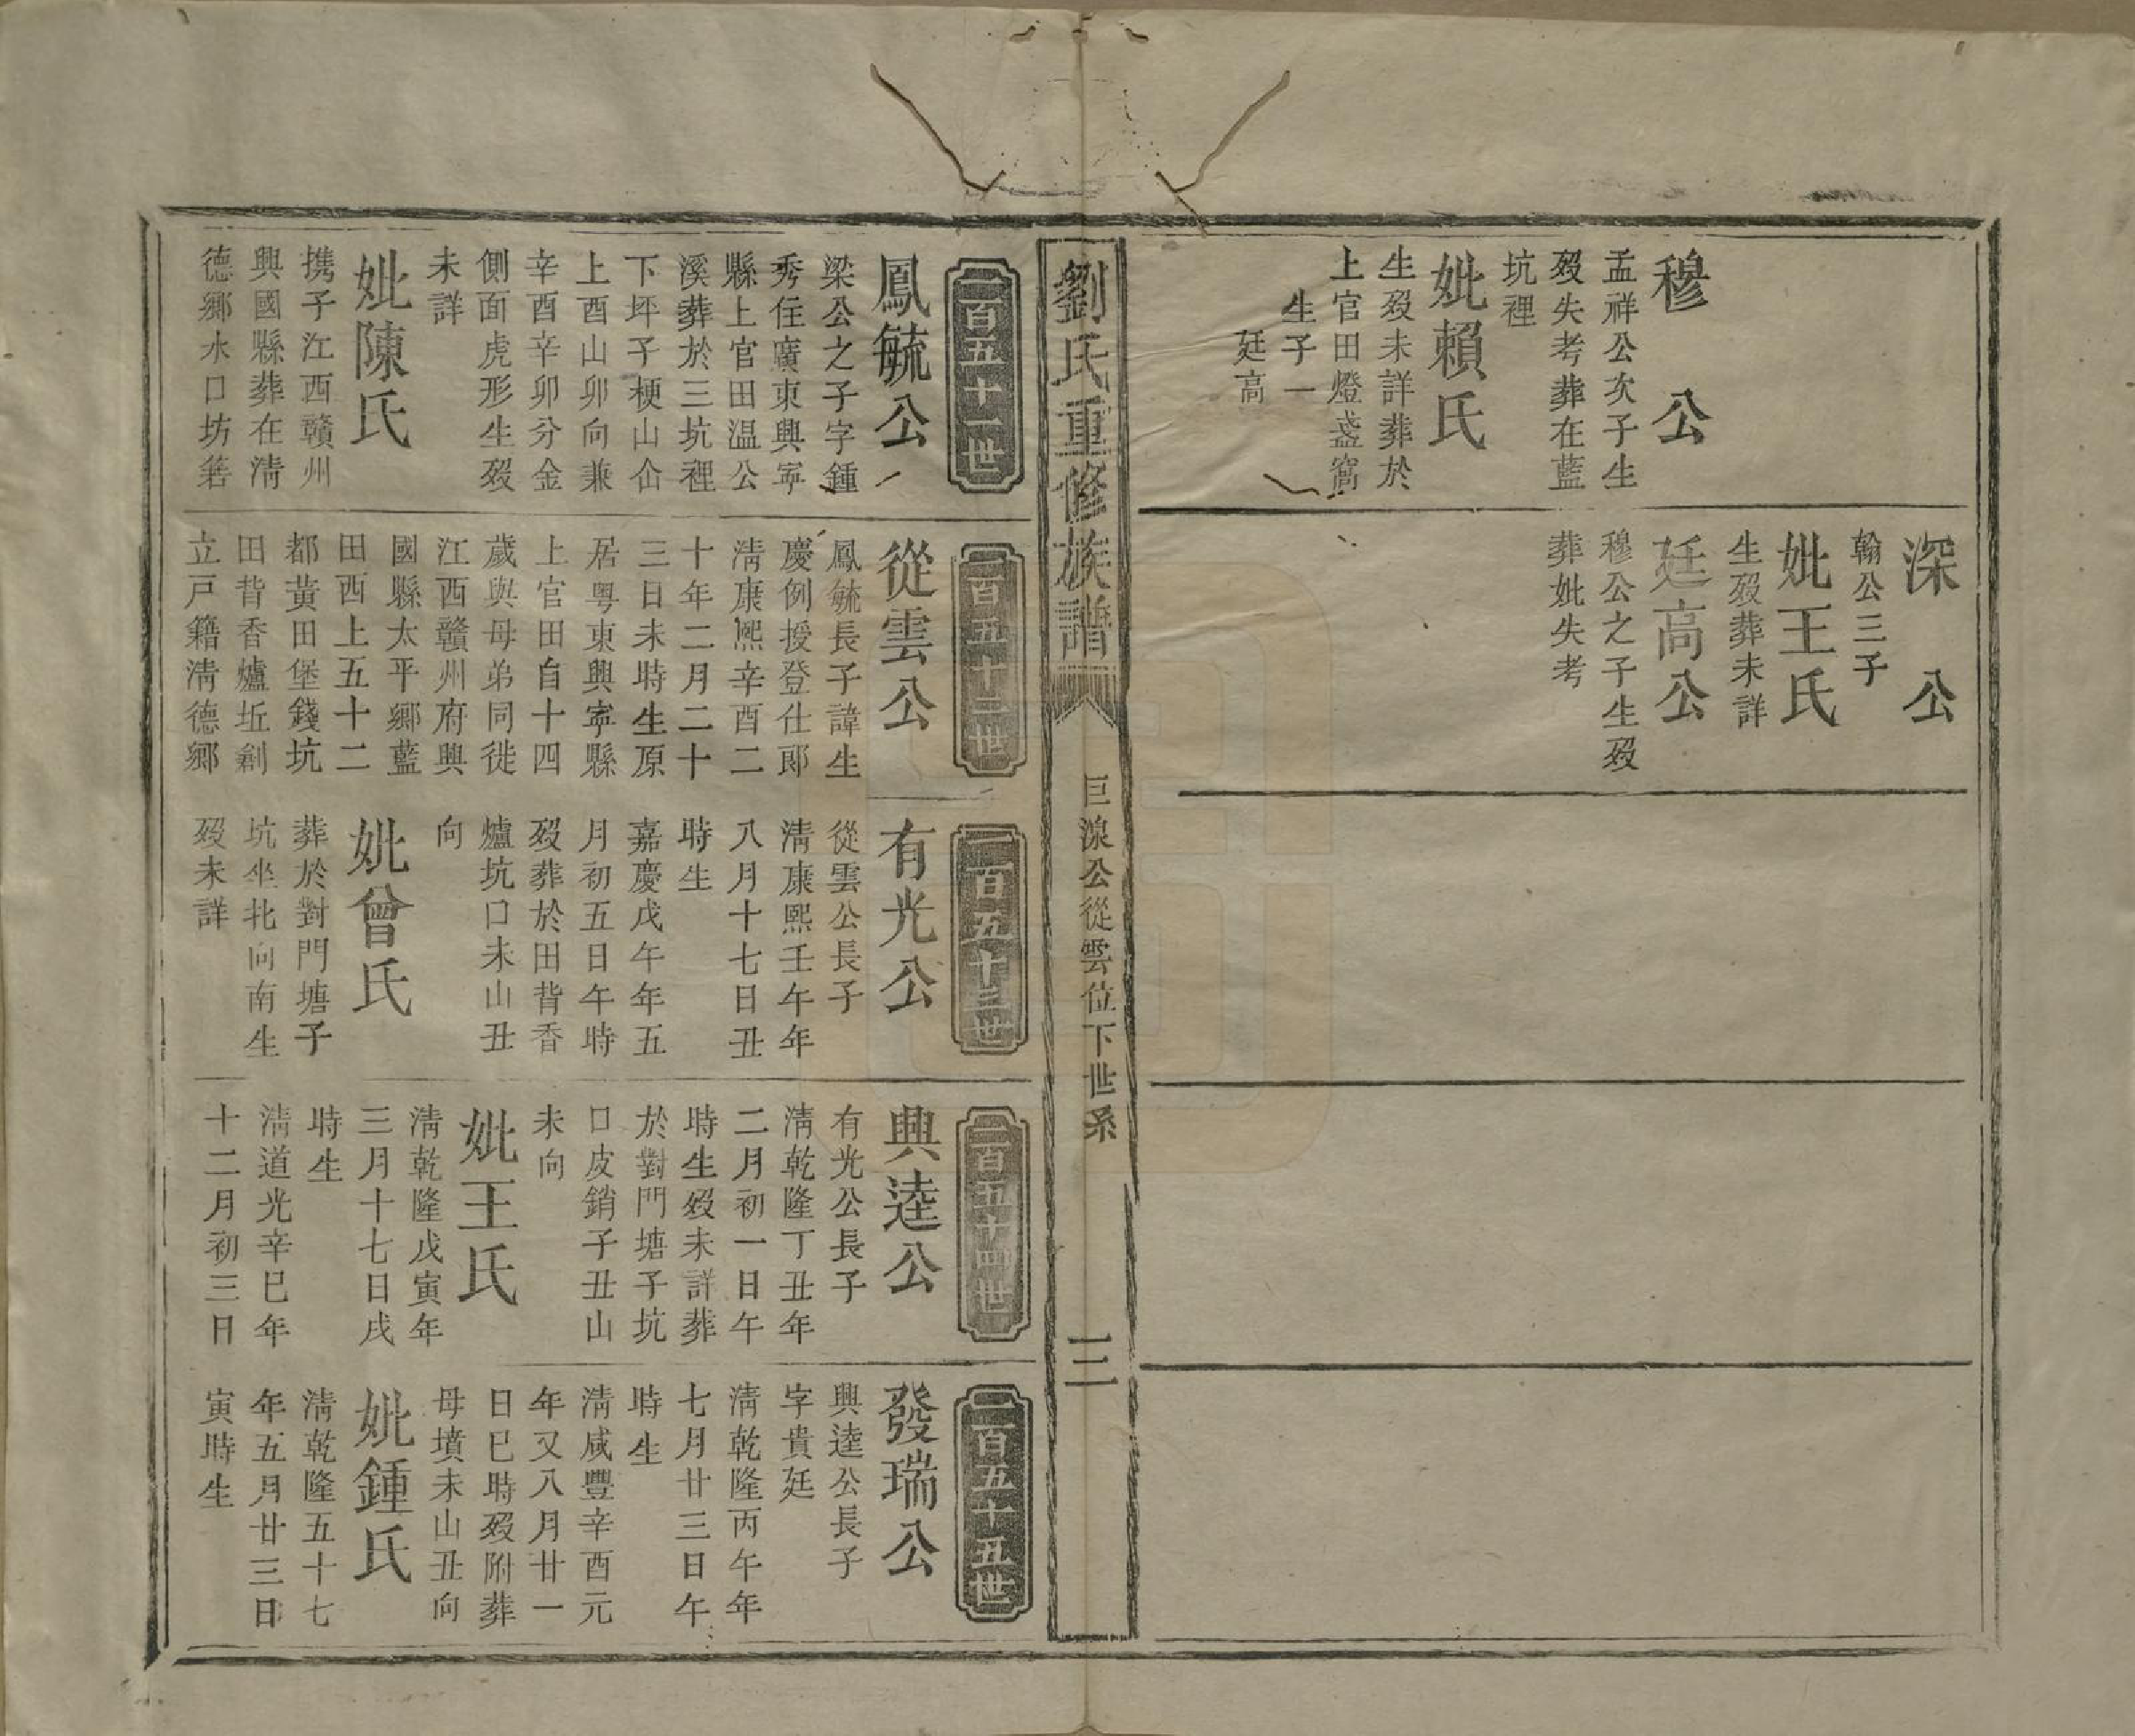 穆公
孟祥公次子生
歿失考葬在藍
坑裡
妣賴氏
生歿未詳葬於
上官田燈盞窩
生子一
廷高
深公
翰公三子
妣王氏
生歿葬未詳
廷高公
穆公之子生歿
葬妣失考
劉氏重修族譜
巨湶公從雲位下世系
三
一百五十一世
鳳毓公
梁公之子字鍾
秀住廣東興寧
縣上官田温公
溪葬於三坑裡
下坪子梗山㕣
上酉山卯向兼
辛酉辛卯分金
側面虎形生歿
未詳
妣陳氏
携子江西贛州
興國縣葬在淸
德鄉水口坊箬
一百五十二世
從雲公
鳳毓長子諱生
慶例授登仕郎
淸康熙辛酉二
十年二月二十
三日未時生原
居粤東興寧縣
上官田自十四
歲與母弟同徙
江西贛州府興
國縣太平鄉藍
田西上五十二
都黃田堡錢坑
田背香爐坵創
立戸籍淸德鄉
一百五十三世
有光公
從雲公長子
淸康熙壬午年
八月十七日丑
時生
嘉慶戊午年五
月初五日午時
歿葬於田背香
爐坑口未山丑
向
妣曾氏
葬於對門塘子
坑坐北向南生
歿未詳
一百五十四世
興逵公
有光公長子
淸乾隆丁丑年
二月初一日午
時生歿未詳葬
於對門塘子坑
口皮銷子丑山
未向
妣王氏
淸乾隆戊寅年
三月十七日戌
時生
淸道光辛巳年
十二月初三日
一百五十五世
發瑞公
興逵公長子
字貴廷
淸乾隆丙午年
七月廿三日午
時生
淸咸豐辛酉元
年又八月廿一
日巳時歿附葬
母墳未山丑向
妣鍾氏
淸乾隆五十七
年五月廿三日
寅時生